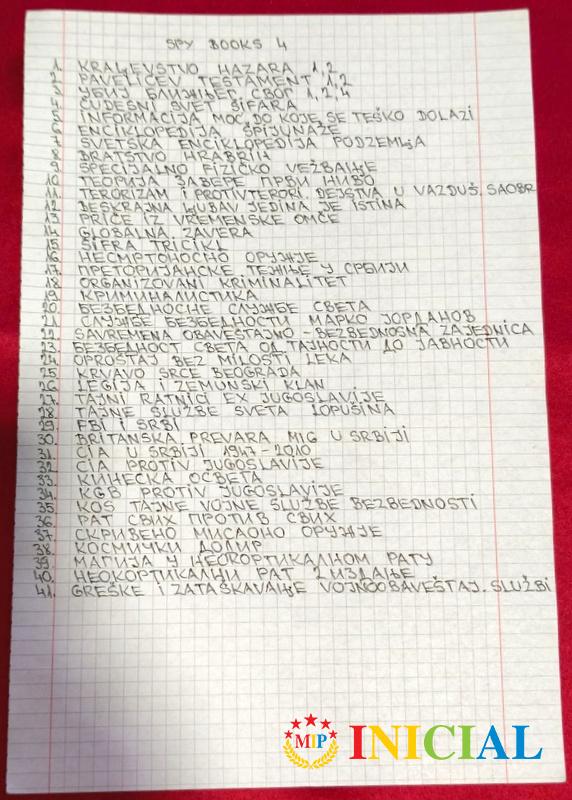 SPY BOOKS 4
1. KRALJEVSTVO HAZARA 1,2
2. PAVELIĆEV TESTAMENT 1,2
3. УБИЈ БЛИЖЊЕГ СВОГ 1,2,4
4. ČUDESNI SVET ŠIFARA
5. INFORMACIJA MOĆ, DO KOJE SE TEŠKO DOLAZI
6. ENCIKLOPEDIJA ŠPIJUNAŽE
7. SVETSKA ENCIKLOPEDIJA PODZEMLJA
8. BRATSTVO HRABRIH
9. SPECIJALNO FIZIČKO VEŽBANJE
10. ТЕОРИЈА ЗАВЕРЕ ПРВИ НИВО
11. TERORIZAM I PROTIVTEROR. DEJSTVA U VAZDUŠ. SAOBR
12. BESKRAJNA LJUBAV JEDINA JE ISTINA
13. PRIČE IZ VREMENSKE OMČE
14. GLOBALNA ZAVERA
15. ŠIFRA TRICIKL
16. НЕСМРТОНОСНО ОРУЖЈЕ
17. ПРЕТОРИЈАНСКЕ ТЕЖЊЕ У СРБИЈИ
18. ORGANIZOVANI KRIMINALITET
19. КРИМИНАЛИСТИКА
20. БЕЗБЕДНОСНЕ СЛУЖБЕ СВЕТА
21. СЛУЖБЕ БЕЗБЕДНОСТИ МАРКО ЈОРДАНОВ
22. SAVREMENA OBAVEŠTAJNO - BEZBEDNOSNA ZAJEDNICA
23. БЕЗБЕДНОСТ СВЕТА ОД ТАЈНОСТИ ДО ЈАВНОСТИ
24. OPROŠTAJ BEZ MILOSTI LEKA
25. KRVAVO SRCE BEOGRADA
26. LEGIJA I ZEMUNSKI KLAN
27. TAJNI RATNICI EX JUGOSLAVIJE
28. TAJNE SLUŽBE SVETA LOPUŠINA
29. FBI I SRBI
30. BRITANSKA PREVARA MIG U SRBIJI
31. CIA U SRBIJI 1947-2010
32. CIA PROTIV JUGOSLAVIJE
33. КИНЕСКА ОСВЕТА
34. KGB PROTIV JUGOSLAVIJE
35. KOS TAJNE VOJNE SLUŽBE BEZBEDNOSTI
36. РАТ СВИХ ПРОТИВ СВИХ
37. СКРИВЕНО МИСАОНО ОРУЖЈЕ
38. КОСМИЧКИ ДОДИР
39. МАГИЈА У НЕОКОРТИКАЛНОМ РАТУ
40. НЕОКОРТИКАЛНИ РАТ 2 ИЗДАЊЕ
41. GREŠKE I ZATAŠKAVANJE VOJNOOBAVEŠTAJ. SLUŽBI
MIP INICIAL